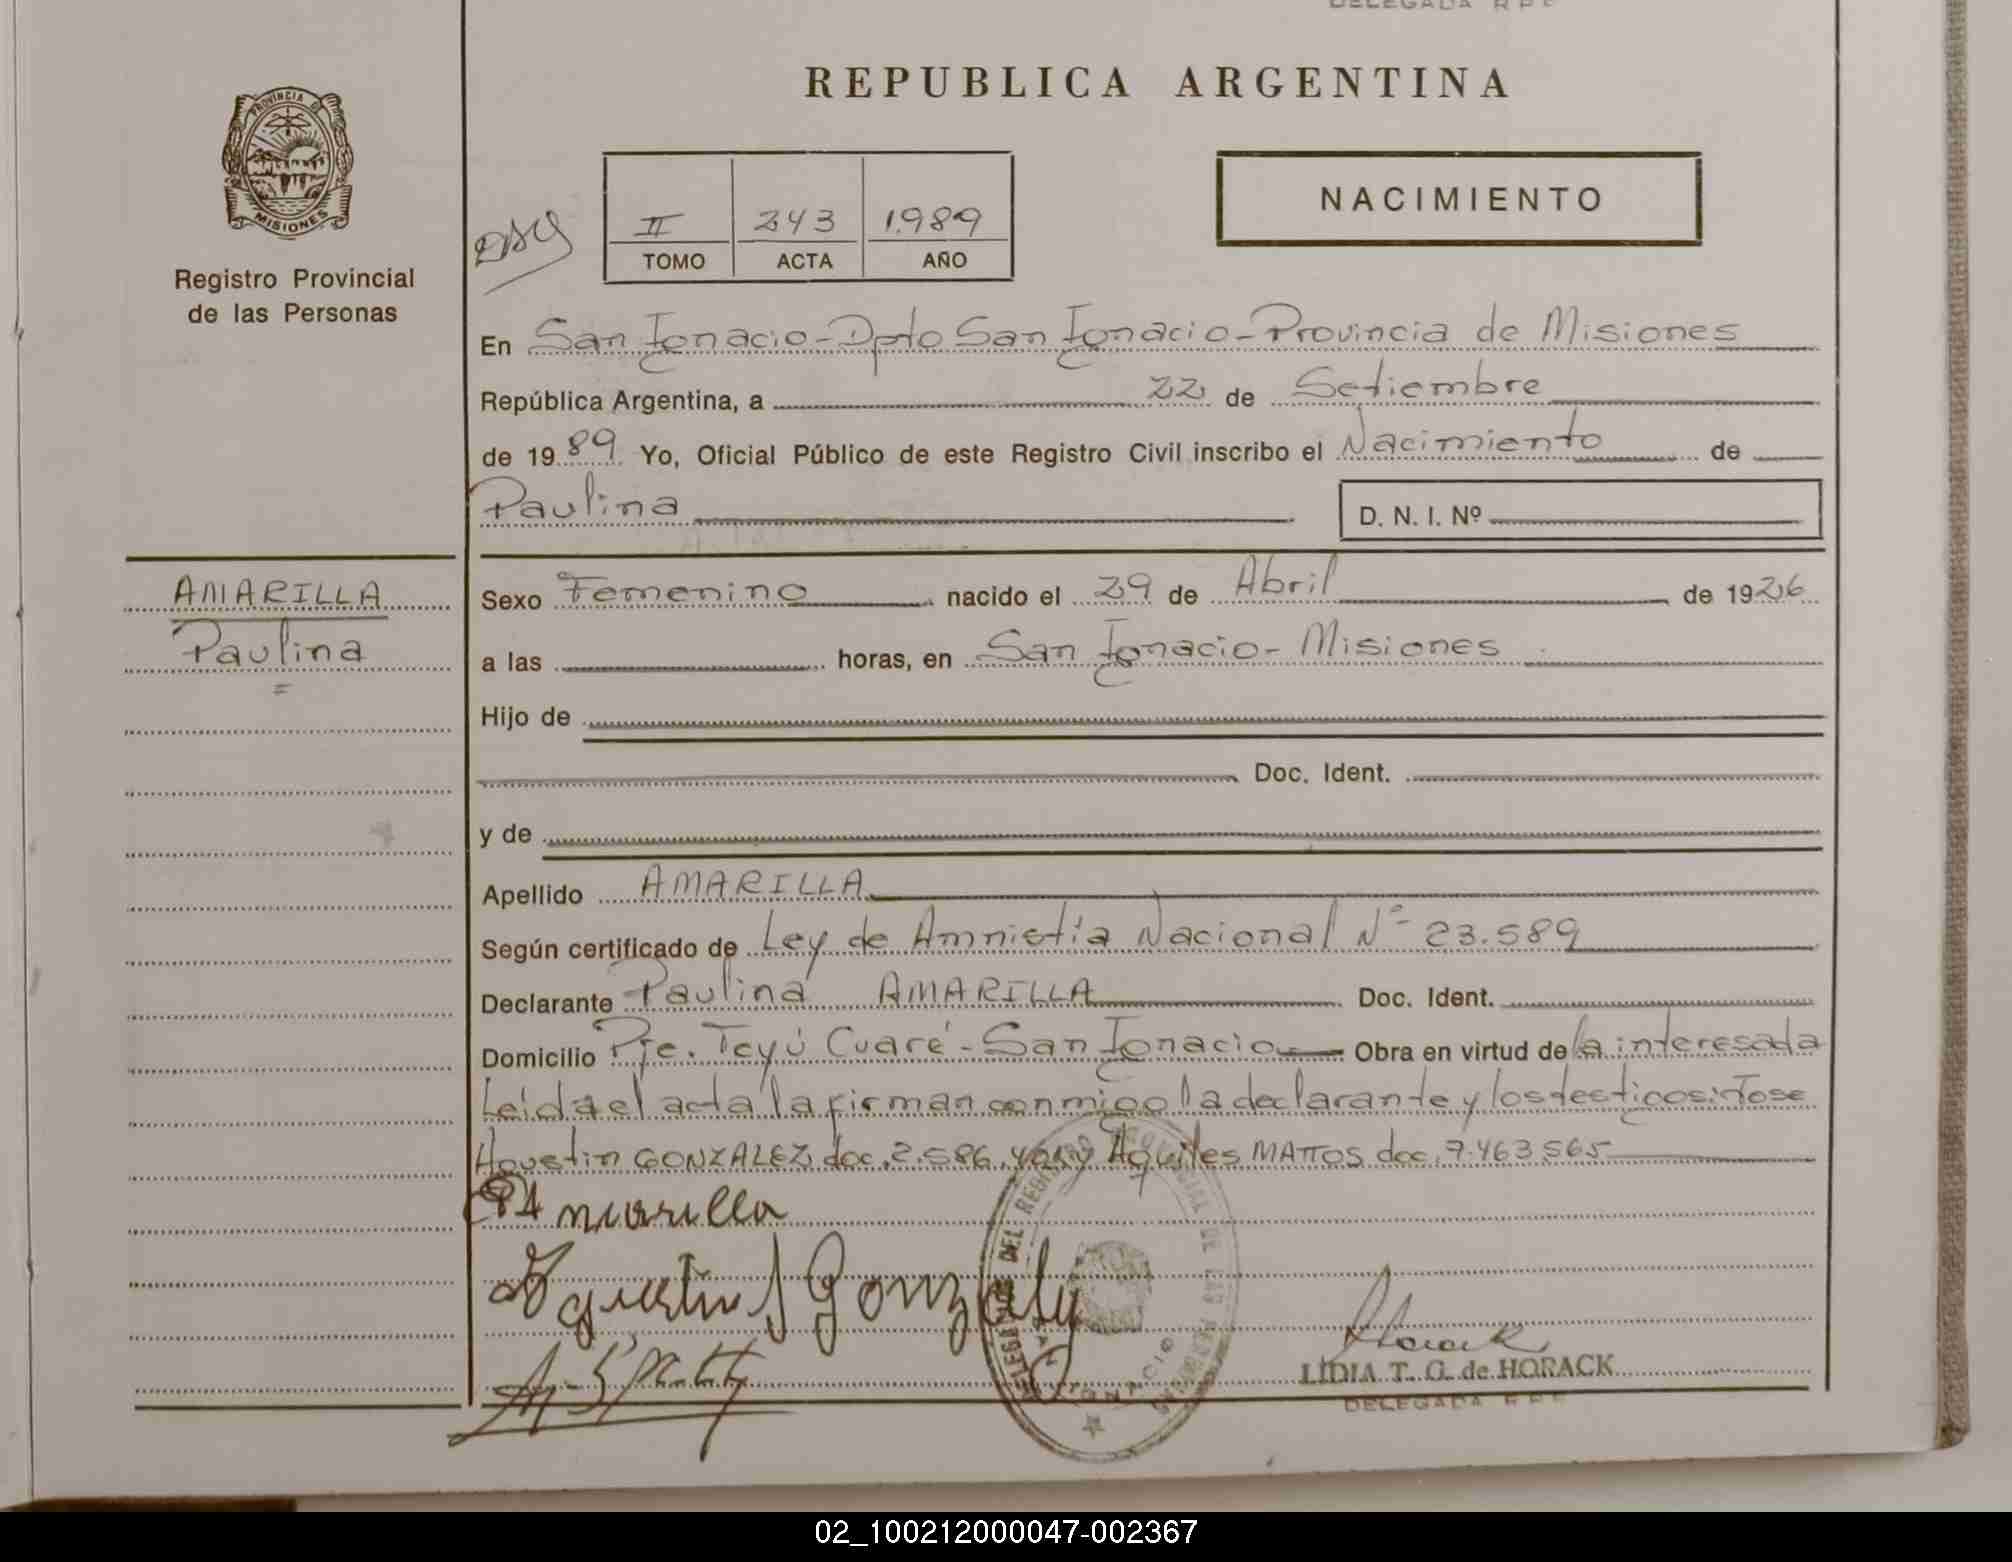 REPUBLICA ARGENTINA
PROVINCIA D
MISIONES
Registro Provincial
de las Personas
II 243 1.989
TOMO ACTA AÑO
NACIMIENTO
En San Ignacio-Dpto San Ignacio-Provincia de Misiones
República Argentina, a 22 de Setiembre
de 1989 Yo, Oficial Público de este Registro Civil inscribo el Nacimiento de
Paulina D. N. I. Nº
AMARILLA
Paulina
Sexo Femenino nacido el 29 de Abril de 1926
a las horas, en San Ignacio-Misiones
Hijo de
Doc. Ident.
y de
Apellido AMARILLA
Según certificado de Ley de Amnistía Nacional Nº 23.589
Declarante Paulina AMARILLA Doc. Ident.
Domicilio Pje. Teyú Cuaré-San Ignacio Obra en virtud de la interesada
Leída el acta la firman conmigo la declarante y los testigos: Jose
Agustin GONZALEZ doc. 2.586. y Aquiles MATTOS doc. 7.463.565
P Amarilla
Agustin J Gonzalez
Horack
LIDIA T. G. de HORACK
DELEGADA R P P
DEL REGISTRO PROVINCIAL DE LAS PERSONAS
02_100212000047-002367